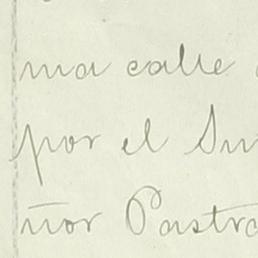 ma calle
por el Sur
ñor Pastra